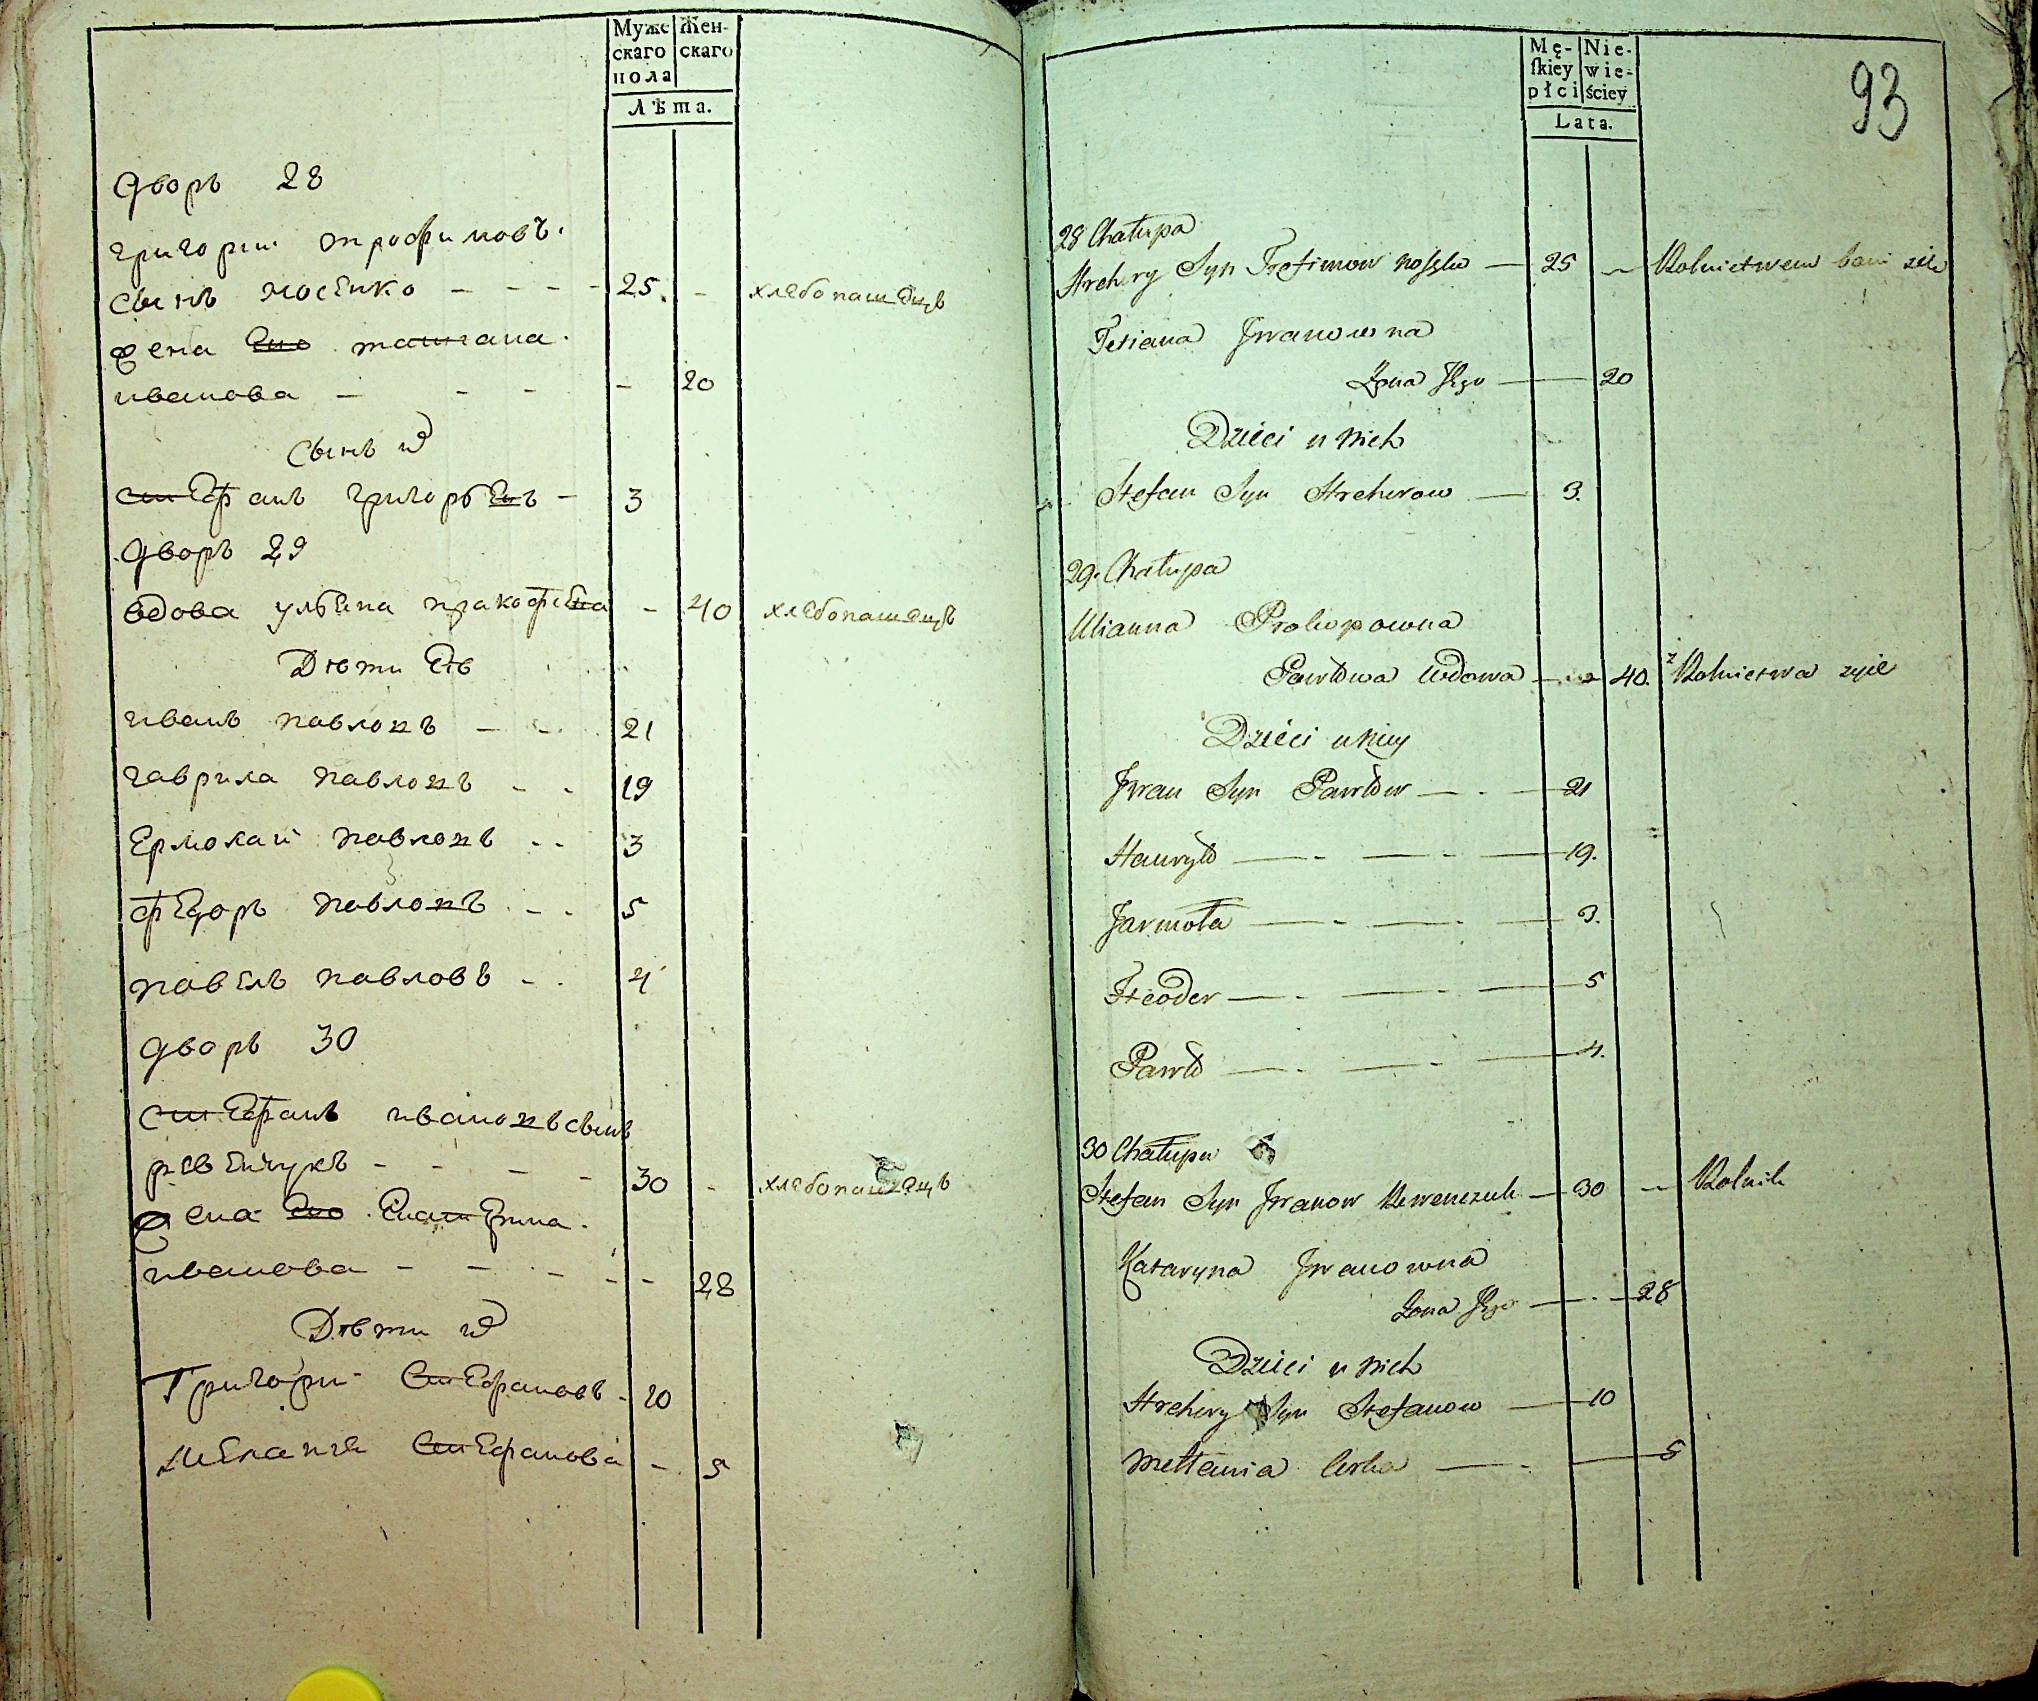 Муже
скаго
пола
Жен-
скаго
Лѣта.
дворъ 28
григорий трофимовъ
сынъ носенко - - - - 25. - хлебопашецъ
жена его татиана
иванова - - - - 20
сынъ их
стефанъ григорьевъ - 3
дворъ 29
вдова ульяна пракофева - 40 хлебопашецъ
Дѣти Ее
иванъ павловъ - - 21
гаврила павловъ - - 19
Ермолай павловъ - - 3
федоръ павловъ - - 5
павелъ павловъ - - 4
дворъ 30
стефанъ ивановъ сынъ
ревенчукъ - - - - 30 - хлебопашецъ
жена его Екатерина
иванова - - - - - 28
Дѣти их
Григори Стефановъ - 10
Мелания Стефанова - 5
93
Mę-
ſkiey
płci
Nie-
wie-
ściey
Lata.
28 Chałupa
Hrehory Syn Trofimow — 25 - Rolnictwem bawi sie
Tetiana Jwanowna
Żona Jego — 20
Dzieci u nich
Stefan Syn Hrehorow — 3.
29. Chałupa
Ulianna Prokopowna
Pawłowa Wdowa - - 40. z Rolnictwa zyie
Dzieci u niey
Jwan Syn Pawłow — - — 21
Hawryło — - — - — 19.
Jarmoła — - — - — 3.
Fteoder — - — - — 5
Pawło — - — - — 4.
30 Chałupa
Stefan Syn Jwanow Rewenczuk — 30 - Rolnik
Kataryna Jwanowna
Żona Jego — - — 28
Dzieci u nich
Hrehory Syn Stefanow — 10
Mełłania Corka — - — 5